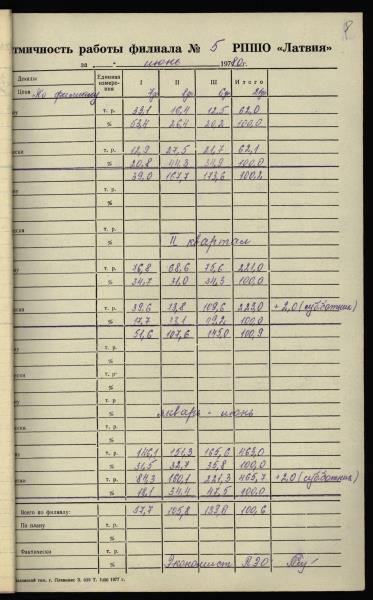 тмичность работы филиала № 5 РПШО «Латвия»
за - июнь 1980г.
Декады Единица измерения I II III Итого
Цеха По филиалу 7д. 8д. 6д. 21д.
ну т. р. 33,1 16,4 12,5 62,0
% 53,4 26,4 20,2 100,0
ски т. р. 12,9 27,5 21,7 62,1
% 20,8 44,3 34,9 100,0
39,0 167,7 173,6 100,2
т. р.
%
т. р.
% II квартал
ну т. р. 76,8 68,6 75,6 221,0
% 34,7 31,0 34,3 100,0
ски т. р. 39,6 73,8 109,6 223,0 +2,0 (субботник)
% 17,7 33,1 49,2 100,0
51,6 107,6 145,0 100,9
т. р.
%
т. р.
%
т. р
% январь - июнь
ну т. р. 146,1 151,3 165,6 463,0
% 31,5 32,7 35,8 100,0
ски т. р. 84,3 160,1 221,3 465,7 +2,0 (субботник)
% 18,1 34,4 47,5 100,0
Всего по филиалу: 57,7 105,8 133,6 100,6
По плану т. р.
%
Фактически т. р.
% Экономист ПЭО